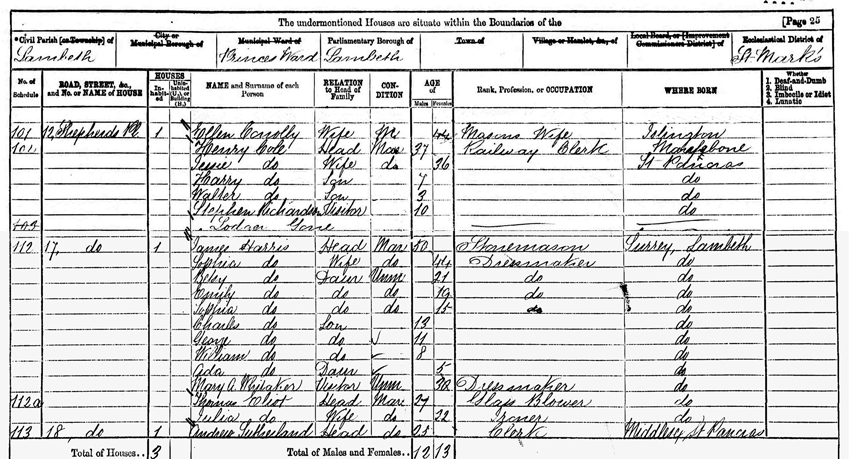 The undermentioned Houses are situate within the Boundaries of the [Page 25
Civil Parish [or Township] of City or Municipal Borough of Municipal Ward of Parliamentary Borough of Town of Village or Hamlet, &c., of Local Board, or [Improvement Commissioners District] of Ecclesiastical District of
Lambeth Princes Ward Lambeth St Mark's
No. of Schedule ROAD, STREET, &c., and No. or NAME of HOUSE HOUSES Inhabited Uninhabited (U.), or Building (B.) NAME and Surname of each Person RELATION to Head of Family CONDITION AGE of Males Females Rank, Profession, or OCCUPATION WHERE BORN Whether 1. Deaf-and-Dumb 2. Blind 3. Imbecile or Idiot 4. Lunatic
101 12, Shepherds Pl 1 Ellen Conolly Wife Mar 44 Masons Wife Islington
101 Henry Cole Head Mar 37 Railway Clerk Marylebone
Jessie do Wife do 36 St Pancras
Harry do Son 7 do
Walter do Son 3 do
Stephen Richardson Visitor 10 do
Lodger Gone
112 17, do 1 James Harris Head Mar 50 Stonemason Surrey, Lambeth
Sophia do Wife do 44 Dressmaker do
Betsy do Daur Unm 21 do do
Emily do do do 19 do do
Sophia do do do 15 do do
Charles do Son 13 do
George do do 11 do
William do do 8 do
Ada do Daur 5 do
Mary A. Whitaker Visitor Unm 30 Dressmaker do
112a Thomas Eliot Head Mar 27 Glass Blower do
Julia do Wife do 22 Ironer do
113 18, do 1 Andrew Sutherland Head do 25 Clerk Middlesex St Pancras
Total of Houses.. 3 Total of Males and Females.. 12 13